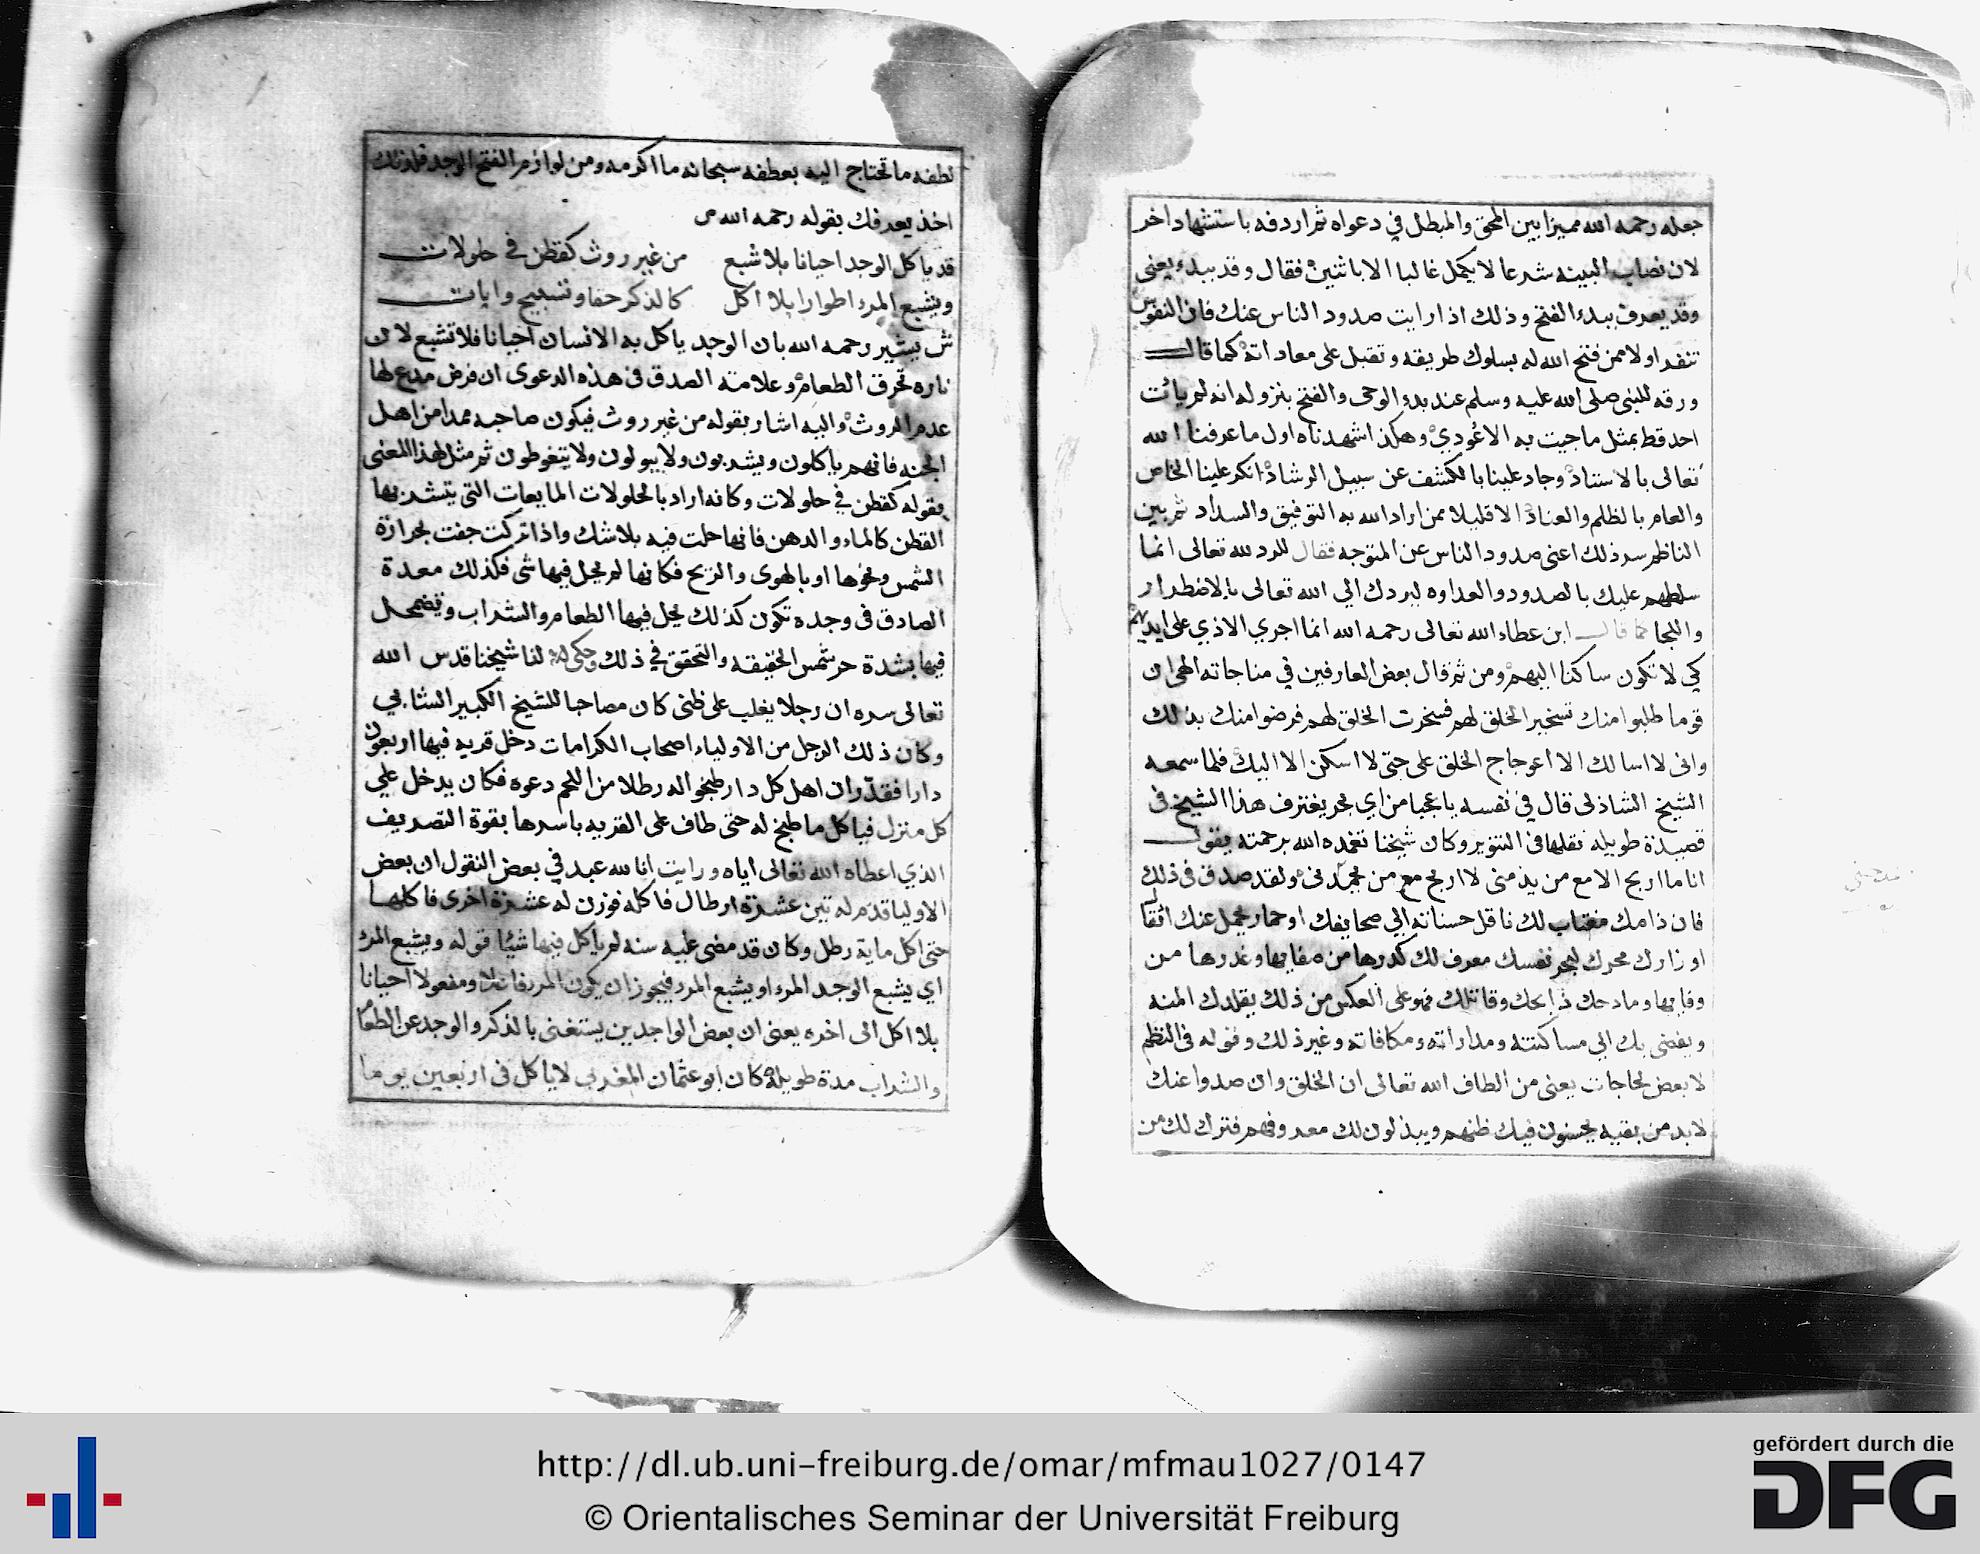 جعله رحمه الله مميزا بين المحق والمبطل في دعواه ثم اردفه باستشهاد اخر
لان نصاب البينه شرعا لا يكمل غالبا الا باثنين فقال وقد ببدء يعنى
وقد يعرف ببدء الفتح وذلك اذا رايت صدود الناس عنك فان النفوس
تنفد اولا ممن فتح الله له بسلوك طريقه وتقبل على معاداته كما قال
ورقه للنبى صلى الله عليه وسلم عند بدء الوحى والفتح بنزوله انه لم يائت
احد قط بمثل ما جيت به الا عودي وهكذا شهدناه اول ما عرفنا الله
تعالى بالاستاذ وجاد علينا بالكشف عن سبيل الرشاد انكر علينا الخاص
والعام بالظلم والعناد الا قليلا ممن اراد الله به التوفيق والسداد ثم بين
الناظم سر ذلك اعنى صدود الناس عن المتوجه فقال للرد لله تعالى انما
سلطهم عليك بالصدود والعداوه ليردك الي الله تعالى بالاضطرار
واللجا كما قال ابن عطاء الله تعالى رحمه الله انما اجري الاذي على ايديهم
كي لا تكون ساكنا اليهم ومن ثم قال بعض العارفين في مناجاته الهى ان
قوما طلبوا منك تسخير الخلق لهم فسخرت الخلق لهم فرضوا منك بذلك
وانى لا اسالك الا اعوجاج الخلق على حتى لا اسكن الا اليك فلما سمعه
الشيخ الشاذلى قال في نفسه يا عجبا من اي بحر يغترف هذا الشيخ فى
قصيدة طويله نقلها فى التنوير وكان شيخنا تغمده الله برحمته يقول
انا ما اربح الا مع من يذمنى لا اربح مع من يحمدنى ولقد صدق فى ذلك
فان ذامك مغتاب لك ناقل حسناته الي صحايفك او حمار يحمل عنك اثقال
اوزارك محرك لبحر نفسك معرف لك كدرها من صفايها وغدرها من
وفايها ومادحك ذابحك وقاتلك فهو على العكس من ذلك يقلدك المنه
ويفضى بك الي مساكنته ومداراته ومكافاته وغير ذلك وقوله فى النظم
لا بعض لحاجات يعنى من الطاف الله تعالى ان الخلق وان صدوا عنك
لا بد من بقيه يحسنون فيك ظنهم ويبذلون لك معروفهم فترك لك من
لطفه ما تحتاج اليه بعطفه سبحانه ما اكرمه ومن لوازم الفتح الوجد فلذلك
اخذ يعرفك بقوله رحمه الله ص
قد ياكل الوجد احيانا بلا شبع من غير روث كقطن في حلولات
ويشبع المرء اطوارا بلا اكل كالذكر حقا وتسبيح وايات
ش يشير رحمه الله بان الوجد ياكل به الانسان احيانا فلا تشبع لان
ناره تحرق الطعام وعلامته الصدق فى هذه الدعوى ان فرض مدع لها
عدم الروث واليه اشار بقوله من غير روث فيكون صاحبه ممدا من اهل
الجنه فانهم ياكلون ويشربون ولا يبولون ولا يتغوطون ثم مثل لهذا المعنى
بقوله كقطن في حلولات وكانه اراد بالحلولات المايعات التى يتشربها
القطن كالماء والدهن فانها حلت فيه بلا شك واذا تركت جفت بحرارة
الشمس ونحوها او بالهوى والريح فكانها لم يحل فيها شى فكذلك معدة
الصادق فى وجده تكون كذلك يحل فيها الطعام والشراب وتضمحل
فيها بشدة حر شمس الحقيقه والتحقق في ذلك وحكى لنا شيخنا قدس الله
تعالى سره ان رجلا يغلب على ظنى كان مصاحبا للشيخ الكبير الشابي
وكان ذلك الرجل من الاولياء اصحاب الكرامات دخل قريه فيها اربعون
دارا فقدر ان اهل كل دار طبخوا له رطلا من اللحم دعوه فكان يدخل علي
كل منزل فياكل ما طبخ له حتى طاف على القريه باسرها بقوة التصريف
الذي اعطاه الله تعالى اياه ورايت انا لله عبد في بعض النقول ان بعض
الاوليا قدم له تين عشرة ارطال فاكله فوزن له عشرة اخرى فاكلها
حتى اكل ماية رطل وكان قد مضى عليه سنه لم ياكل فيها شيئا قوله ويشبع المرء
اي يشبع الوجد المرء او يشبع المرء فيجوز ان يكون المرء فاعلا ومفعولا احيانا
بلا اكل الى اخره يعنى ان بعض الواجدين يستغنى بالذكر والوجد عن الطعام
والشراب مدة طويله كان ابو عثمان المغربي لا ياكل فى اربعين يوما
http://dl.ub.uni-freiburg.de/omar/mfmau1027/0147
© Orientalisches Seminar der Universität Freiburg
gefördert durch die
DFG